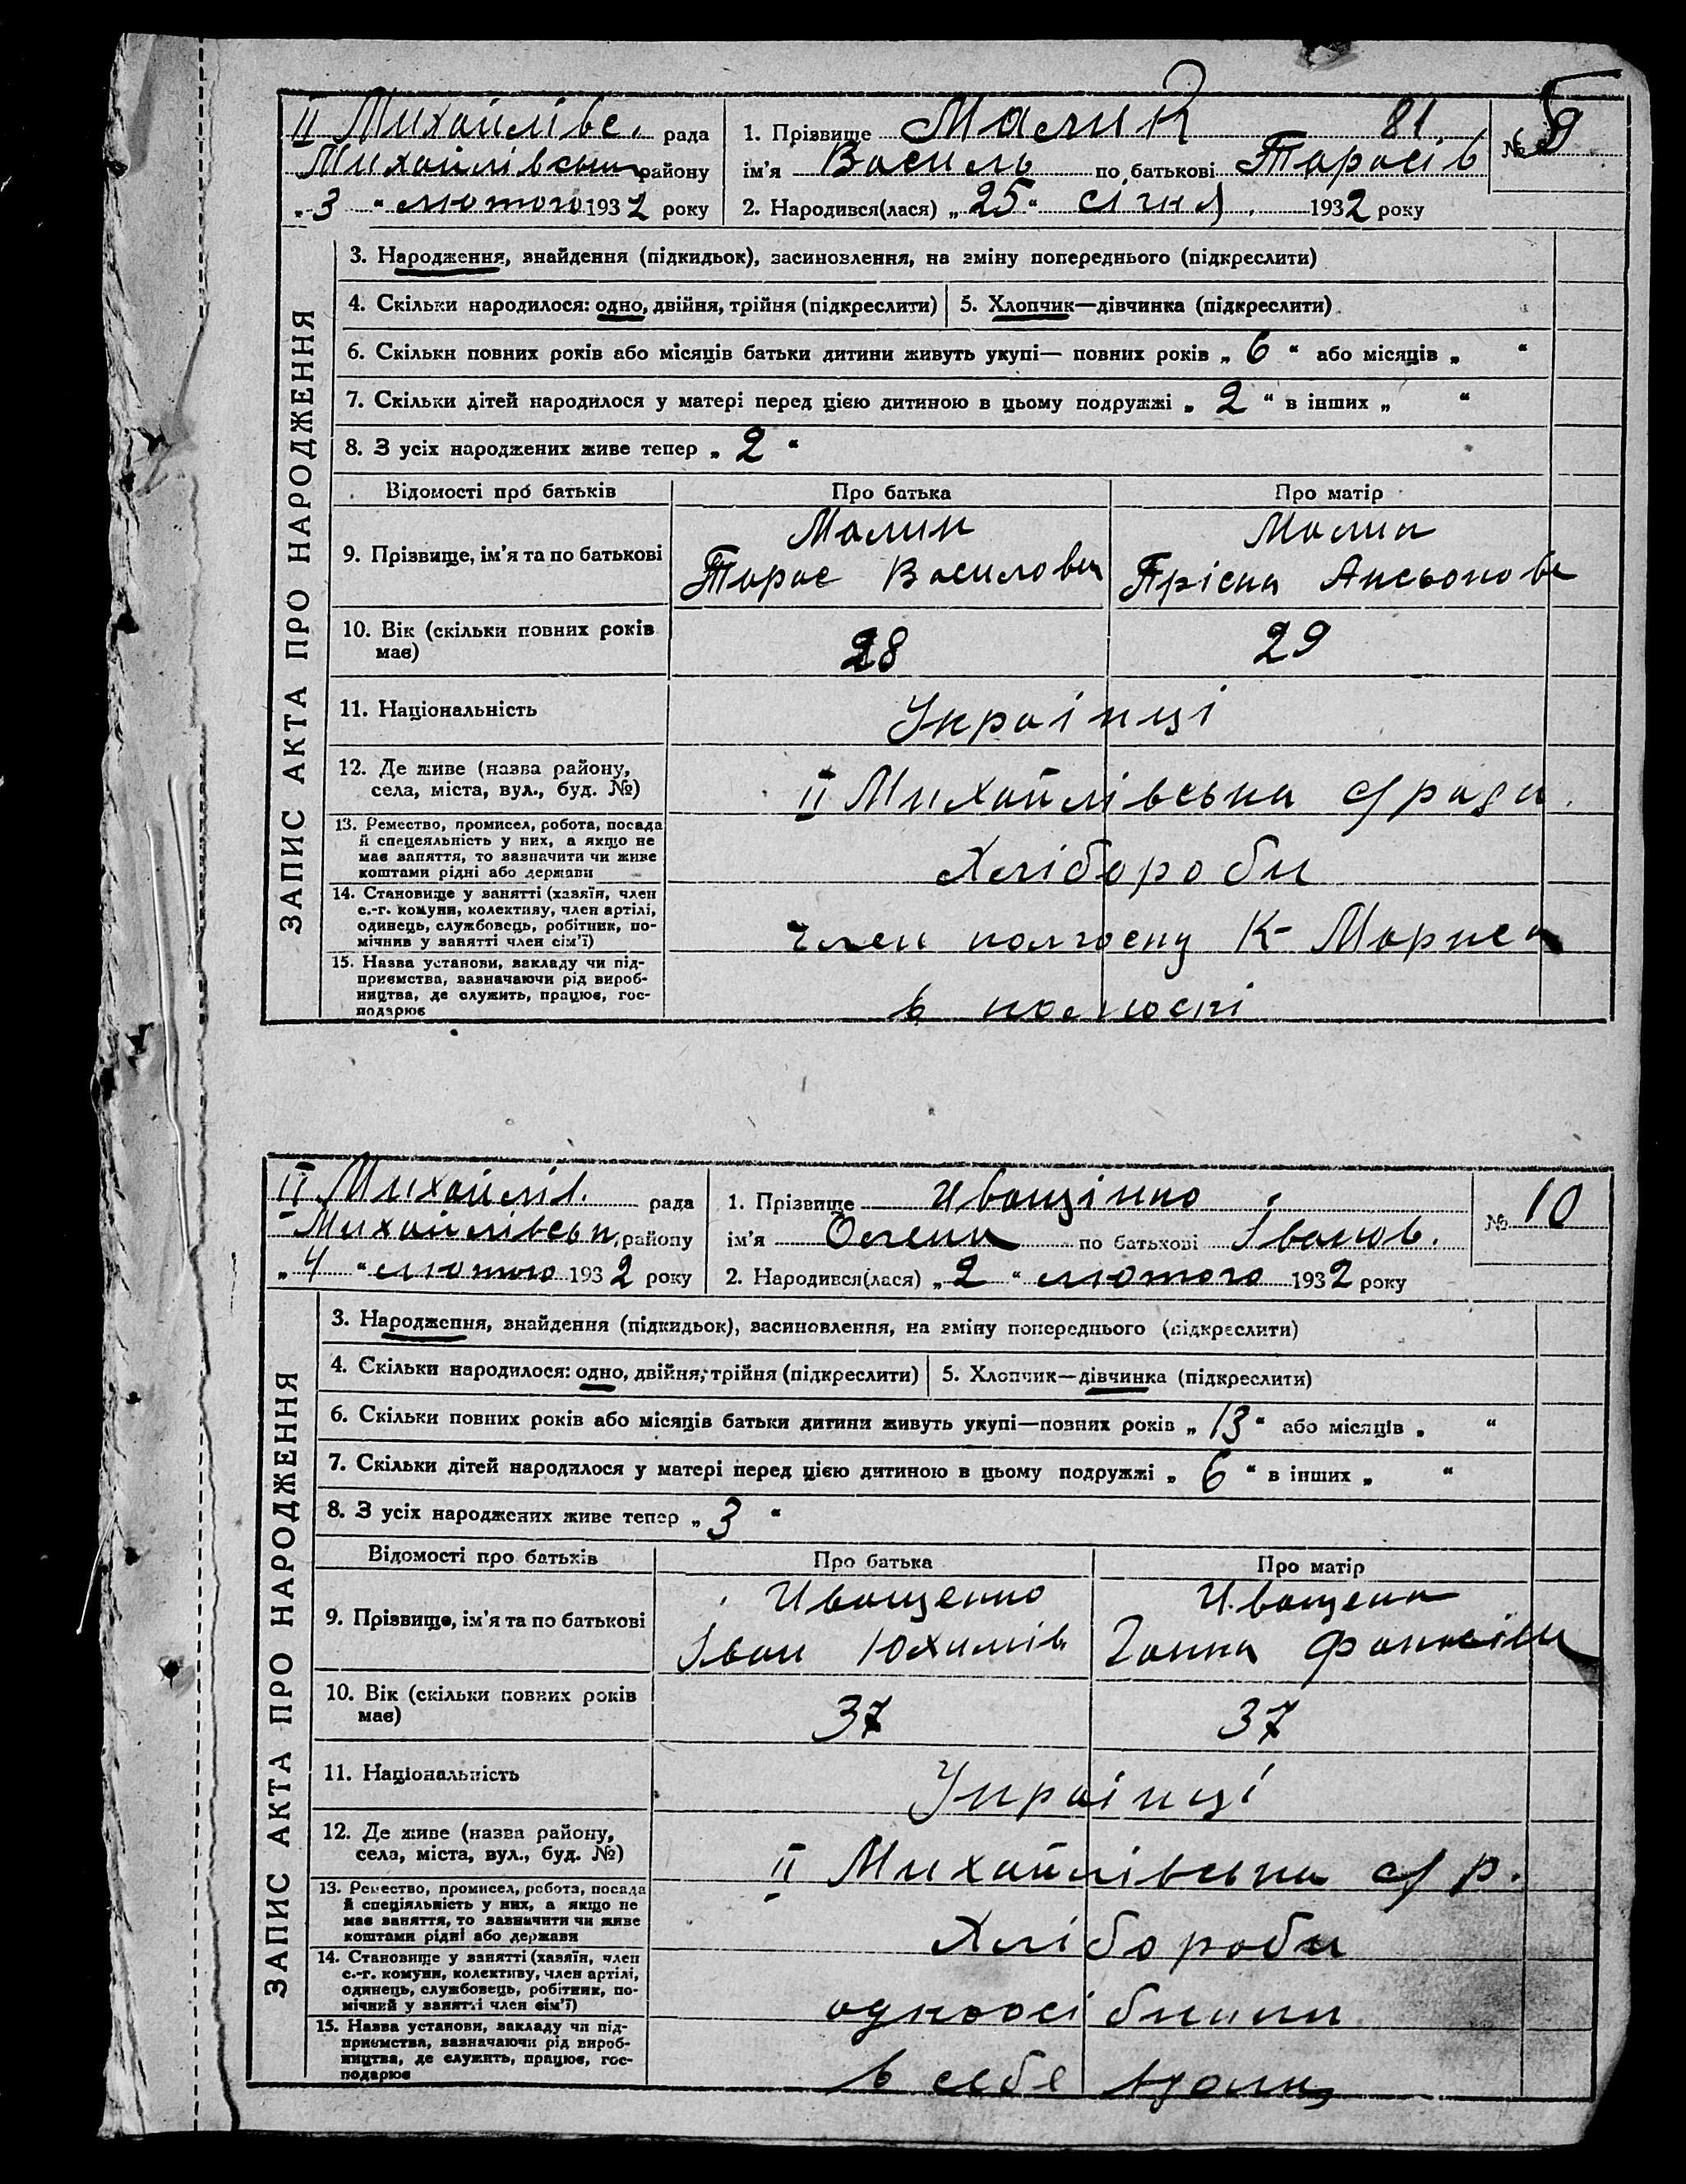 II Михайлівс. рада
Михайлівськ району
„3“ лютого 1932 року
1. Прізвище Малик 81
ім'я Василь по батькові Тарасів
2. Народився(лася) „25“ січня 1932 року
№ 9
ЗАПИС АКТА ПРО НАРОДЖЕННЯ
3. Народження, знайдення (підкидьок), засиновлення, на зміну попереднього (підкреслити)
4. Скільки народилося: одно, двійня, трійня (підкреслити)
5. Хлопчик—дівчинка (підкреслити)
6. Скільки повних років або місяців батьки дитини живуть укупі— повних років „6“ або місяців „ “
7. Скільки дітей народилося у матері перед цією дитиною в цьому подружжі „2“ в інших „ “
8. З усіх народжених живе тепер „2“
Відомості про батьків Про батька Про матір
9. Прізвище, ім'я та по батькові
Малик
Тарас Василови
Малик
Прісна Аксьонов
10. Вік (скільки повних років
має)
28 29
11. Національність Українці
12. Де живе (назва району,
села, міста, вул., буд. №)
II Михайлівська с/рада.
13. Ремество, промисел, робота, посада
й спеціяльність у них, а якщо не
має заняття, то зазначити чи живе
коштами рідні або держави
Хлібороби
14. Становище у занятті (хазяїн, член
с.-г. комуни, колективу, член артілі,
одинець, службовець, робітник, по-
мічник у занятті член сім'ї)
член колгоспу К- Маркса
15. Назва установи, закладу чи під-
приємства, зазначаючи рід вироб-
ництва, де служить, працює, гос-
подарює
в колгоспі
II Михайлів. рада
Михайлівськ. району
„4“ лютого 1932 року
1. Прізвище Иващінко
ім'я Олена по батькові Іванов.
2. Народився(лася) „2“ лютого 1932 року
№ 10
ЗАПИС АКТА ПРО НАРОДЖЕННЯ
3. Народження, знайдення (підкидьок), засиновлення, на зміну попереднього (підкреслити)
4. Скільки народилося: одно, двійня, трійня (підкреслити)
5. Хлопчик—дівчинка (підкреслити)
6. Скільки повних років або місяців батьки дитини живуть укупі—повних років „13“ або місяців „ “
7. Скільки дітей народилося у матері перед цією дитиною в цьому подружжі „6“ в інших „ “
8. З усіх народжених живе тепер „3“
Відомості про батьків Про батька Про матір
9. Прізвище, ім'я та по батькові
Иващенко
Іван Юхимів
Иващенк
Ганна Фанасіви
10. Вік (скільки повних років
має)
37 37
11. Національність Українці
12. Де живе (назва району,
села, міста, вул., буд. №)
II Михайлівська с/р.
13. Ремество, промисел, робота, посада
й спеціяльність у них, а якщо не
має заняття, то зазначити чи живе
коштами рідні або держави
Хлібороби
14. Становище у занятті (хазяїн, член
с.-г. комуни, колективу, член артілі,
одинець, службовець, робітник, по-
мічний у занятті член сім'ї)
одноосібники
15. Назва установи, закладу чи під-
приємства, зазначаючи рід вироб-
ництва, де служить, працює, гос-
подарює
в себе вдома